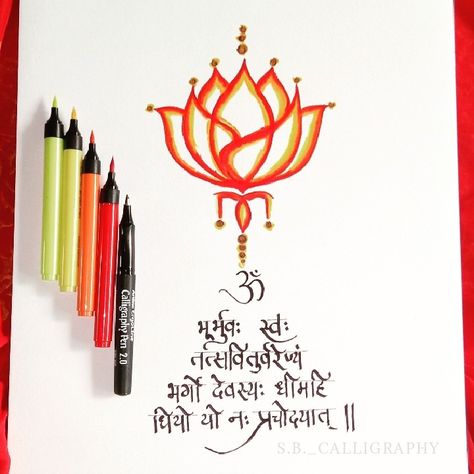 ॐ
भूर्भुवः स्वः
तत्सवितुर्वरेण्यं
भर्गो देवस्यः धीमहि
धियो यो नः प्रचोदयात् ॥
Calligraphy Pen 2.0
S.B._CALLIGRAPHY